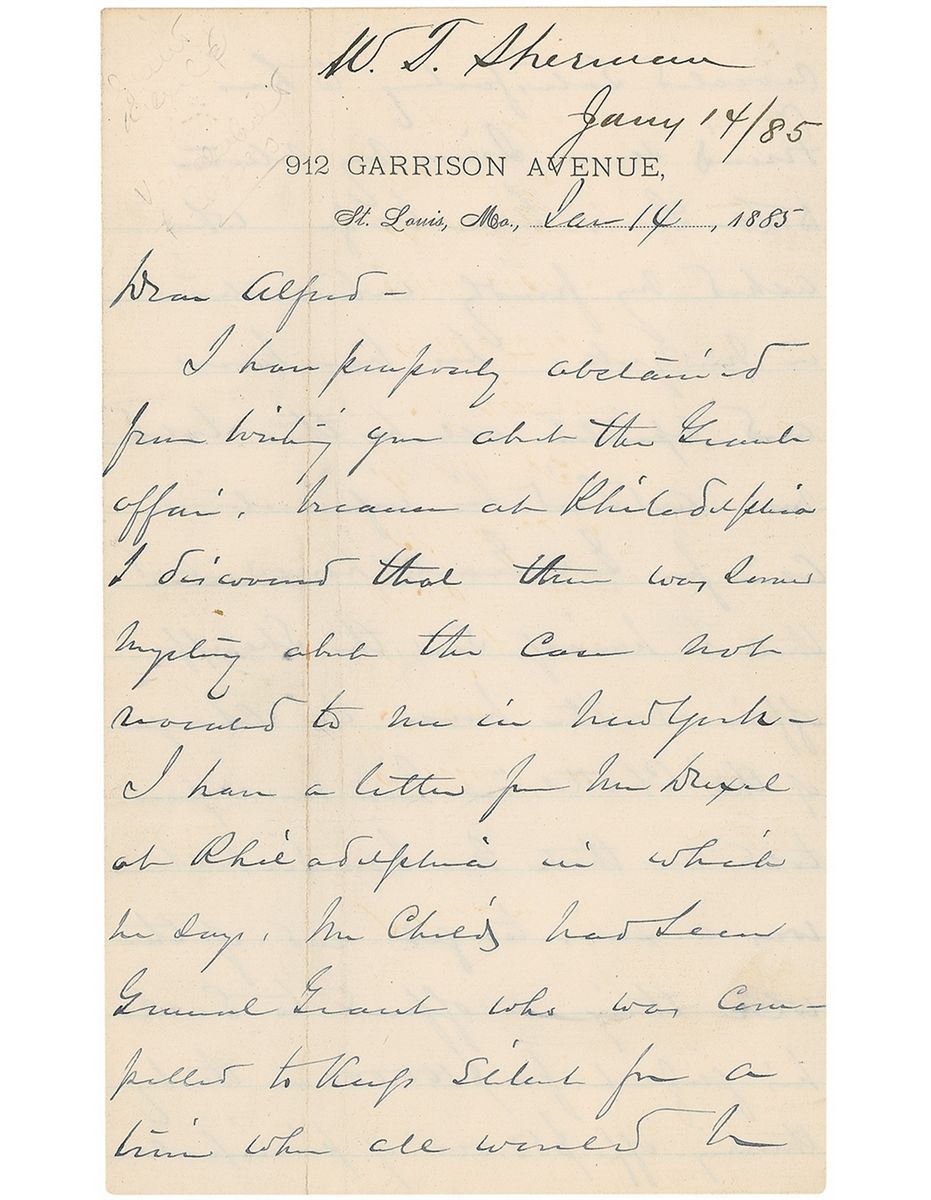 W. T. Sherman
Jany 14/85
912 GARRISON AVENUE,
St. Louis, Mo., Jan 14, 1885
Dear Alfred -
I have purposely abstained
from writing you about the Grant
affair, because at Philadelphia
I discovered that there was some
mystery about the case not
revealed to me in New York -
I have a letter from Mr Drexel
at Philadelphia in which
he says, Mr Childs had seen
General Grant who was com-
pelled to keep silent for a
time when all would be